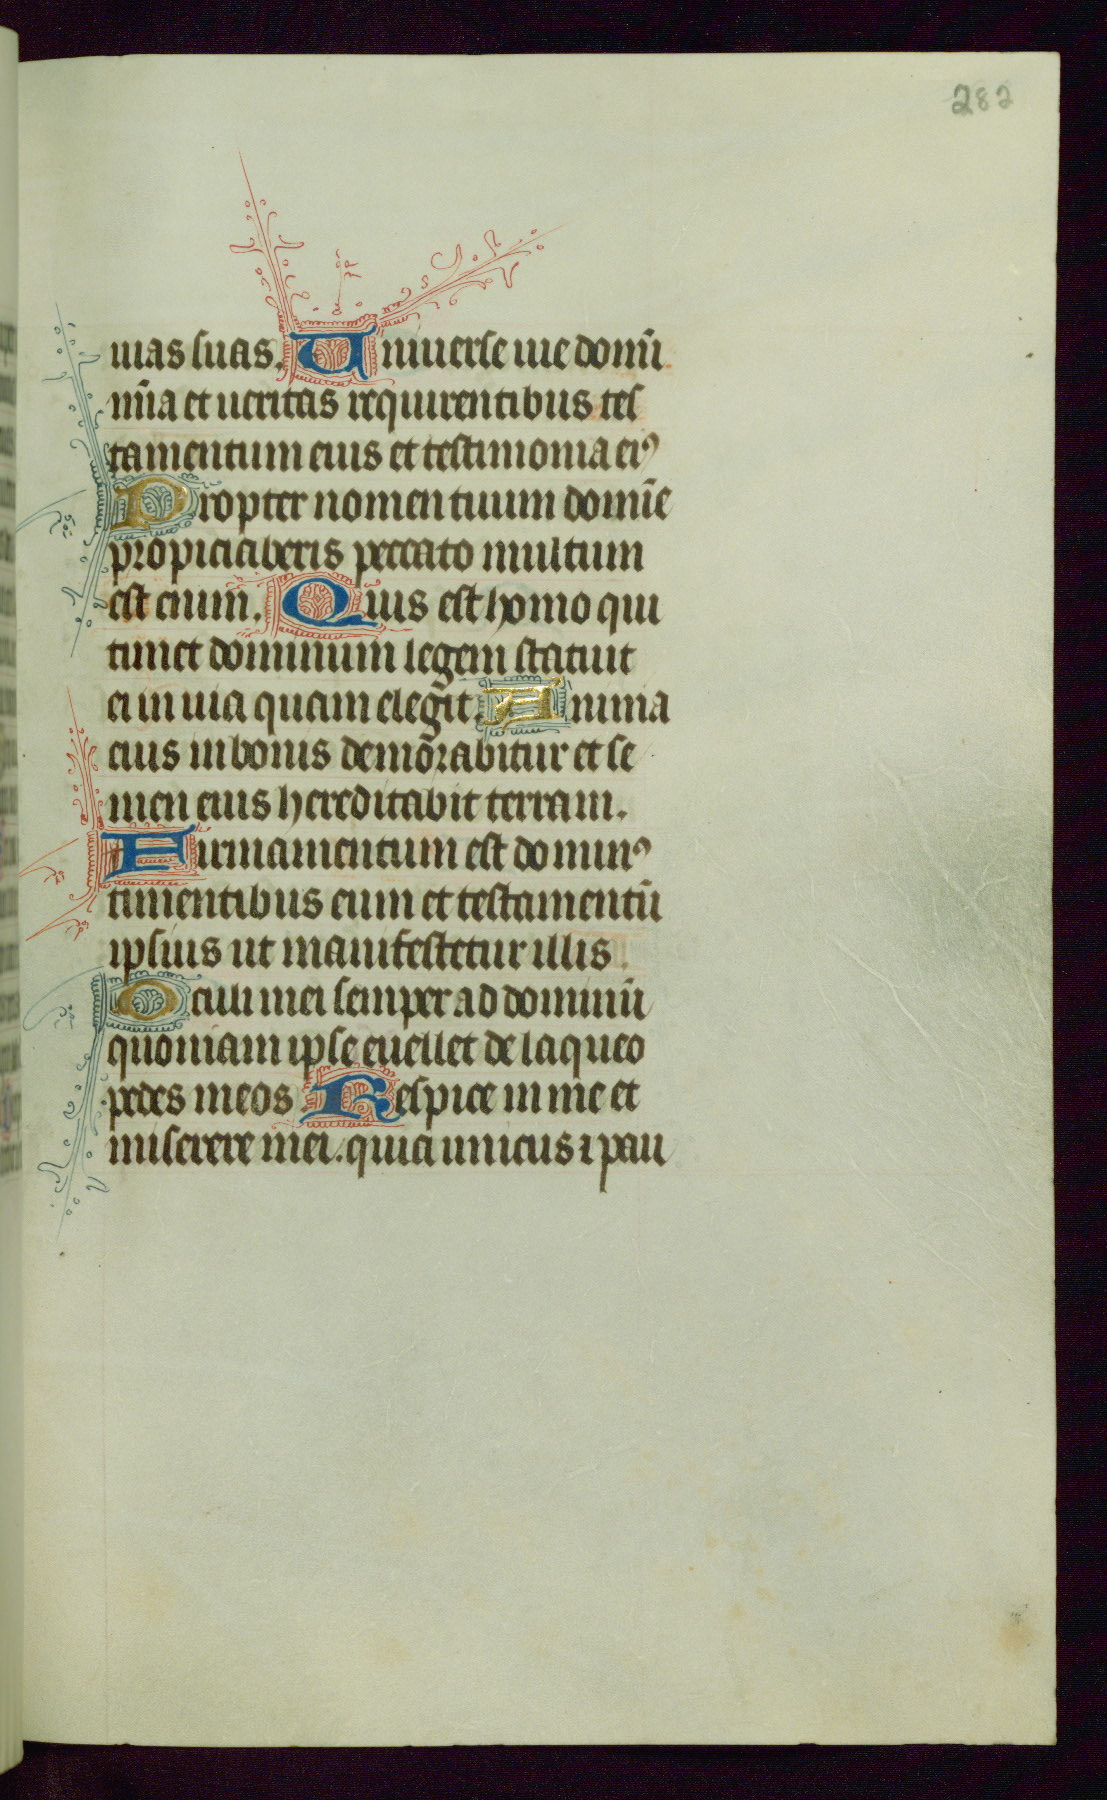 282
uias suas. Uniuerse uie domī
mīa et ueritas requirentibus tes
tamentum eius et testimonia eiꝰ
Propter nomen tuum domīe
propiciaberis peccato multum
est enim. Quis est homo qui
timet dominum legem statuit
ei in uia quam elegit. Anima
eius in bonis demorabitur et se
men eius hereditabit terram.
Firmamentum est dominꝰ
timentibus eum et testamentū
ipsius ut manifestetur illis.
Oculi mei semper ad dominū
quoniam ipse euellet de laqueo
pedes meos. Respice in me et
miserere mei. quia unicus ⁊ pau